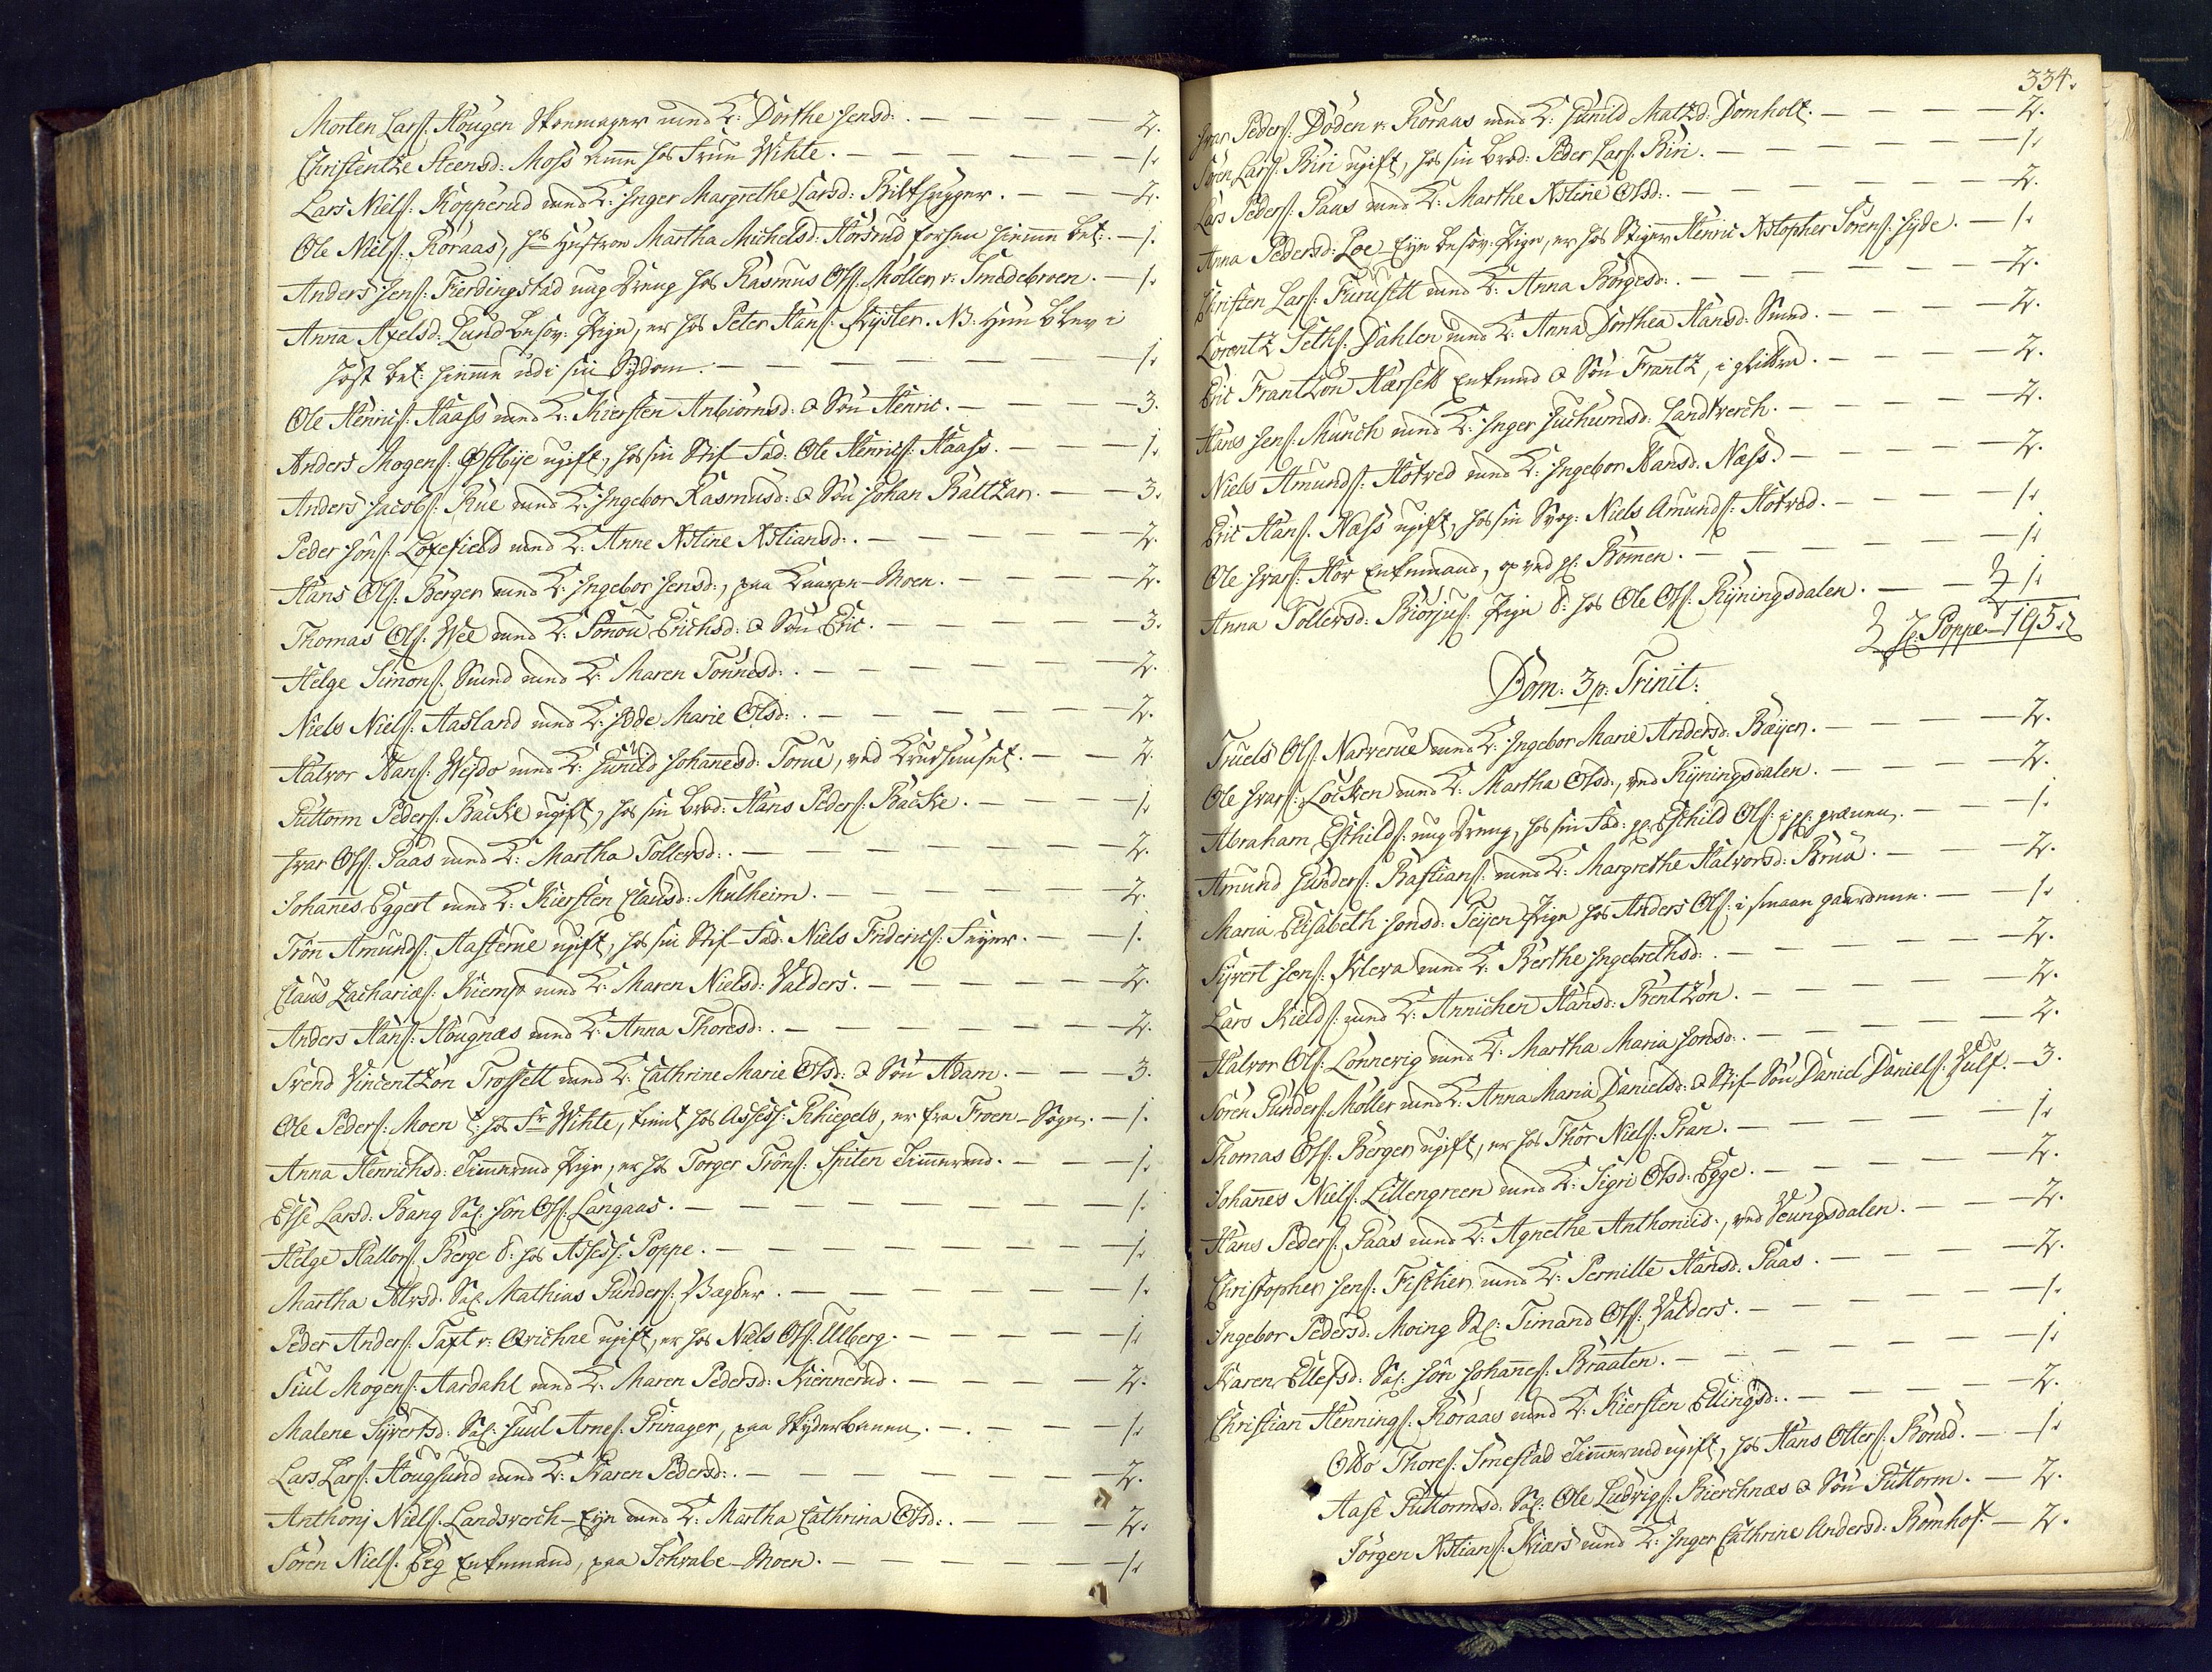 Morten Lars: Hougen Skomager med K: Dorthe Jensd: . — 2.
Christentze Steensd: Moss Amme hos Frue Wihte. — 1.
Lars Niels: Kopperud med K: Inger Margrethe Larsd: Bilthugger. — 2.
Ole Niels: Röraas, hs Hustroe Martha Michelsd: Horsrud forhen hiemme bet: — 1.
Anders Jens: Fierdingstad ung Dreng hos Rasmus Ols: Möller v: Smedebroen. — 1.
Anna Axelsd: Lund besov: Pige, er hos Peter Hans: Kyster. NB: Hun blev i
Höst bet: hiemme udi sin Sygdom. — 1.
Ole Henrics: Haass med K: Kiersten Anbiörnsd: & Sön Henric. — 3.
Anders Mogens: Östbye ugift, hos sin Stif-Fad: Ole Henrics: Haass. — 1.
Anders Jacobs: Rue med K: Ingebor Rasmusd: & Sön Johan Baltzar. — 3.
Peder Jöns: Loxefield med K: Anne Xstine Xstiansd: . — 2.
Hans Ols: Berger med K: Ingebor Jensd:, paa Moen. — 2.
Thomas Ols: Wee med K: Sönou Erichsd: & Sön Eric. — 3.
Helge Simons: Sund med K: Maren Tönnesd: . — 2.
Niels Niels: Aasland med K: Odde Marie Olsd: . — 2.
Halvor Hans: Wejdo med K: Gunild Johanesd: Torue, ved Krudhuuset. — 2.
Guttorm Peders: Backe ugift, hos sin Brod: Hans Peders: Backe. — 1.
Ivar Ols: Paas med K: Martha Tollevsd: . — 2.
Johanes Eggert med K: Kiersten Clausd: Mulheim. — 2.
Trön Amunds: Aasterue ugift, hos sin Stif-Fad: Niels Friderics: — 1.
Claus Zacharias: Kiemp med K: Maren Nielsd: Valders. — 2.
Anders Hans: Hougnæs med K: Anna Thoresd: . — 2.
Svend Vincentzön Trossett med K: Cathrine Marie Olsd: & Sön Adam. — 3.
Ole Peders: Moen t: hos Fr Wihte, tient hos Assess: Schiegels, er fra Froen-Sogn. — 1.
Anna Henrichsd: Tömmerud Pige, er hos Torger Tröns: Spiten Tömmerud. — 1.
Else Larsd: Bang Sal: Jön Ols: Langaas. — 1.
Helge Hallors: Berge t: hos Assess: Poppe. — 1.
Martha Alvsd: Sal: Mathias Gunders: Bagger. — 1.
Peder Anders: Taxt v: Qvichne ugift, er hos Niels Ols: Ulberg. — 1.
Siul Mogens: Aardahl med K: Maren Pedersd: Kiennerud. — 2.
Malene Syvertsd: Sal: Juul Arnes: Prinager, paa Skyderbanen. — 1.
Lars Lars: Hougsund med K: Karen Pedersd: . — 2.
Anthonj Niels: Landsverch-Eye med K: Martha Cathrina Olsd: . — 2.
Sören Niels: Eeg Enkemand, paa Schrabe-Moen. — 1.
334.
Ivar Peders: Döden v: Röraas med K: Gunild Matzd: Domholt. — 2.
Sören Lars: Biri ugift, hos sin Brod: Peder Lars: Biri. — 1.
Lars Peders: Paus med K: Marthe Xstine Olsd: . — 2.
Anna Pedersd: Loe-Eye besov: Pige, er hos Stiger Henric Xstopher Sörens: Hyde. — 1.
Christen Lars: Furusett med K: Anna Börgesd: . — 2.
Lorentz Seths: Dahlen med K: Anna Dorthea Hansd: Sund. — 2.
Eric Frantzön Harsett Enkemd & Sön Frantz, i Glittre. — 2.
Hans Jens: Munch med K: Inger Juchumsd: Landsverch. — 2.
Niels Amunds: Hotved med K: Ingebor Hansd: Næss. — 2.
Eric Hans: Næss ugift, hos sin Svog: Niels Amunds: Hotved. — 1.
Ole Ivars: Hör Enkemand, op ved gl: Bommen. — 1.
Anna Tollevsd: Biörjus: Pige t: hos Ole Ols: Ryningsdalen. — 1.
H: Poppe — 195.
Dom: 3 p: Trinit:
Truels Ols: Narverue med K: Ingebor Marie Andersd: Bæyen. — 2.
Ole Ivars: Löcken med K: Martha Olsd:, ved Ryningsdalen. — 2.
Abraham Eschilds: ung Dreng, hos sin Fad: gl: Eschild Ols: i gl: grænen. — 1.
Amund Gunders: Bastians: med K: Margrethe Halvorsd: Bruu. — 2.
Maria Elisabeth Jonsd: Teyen Pige hos Anders Ols: i smaae gaardene. — 1.
Syvert Jens: Kleva med K: Berthe Ingebrethsd: . — 2.
Lars Kields: med K: Annichen Hansd: Bentzön. — 2.
Halvor Ols: Lonnevig med K: Martha Maria Jonsd: . — 2.
Sören Gunders: Möller med K: Anna Maria Danielsd: & Stif-Sön Daniel Daniels: Wulf. — 3.
Thomas Ols: Berger ugift, er hos Thor Niels: Gran. — 1.
Johanes Niels: Lillengreen med K: Sigri Olsd: Egge. — 2.
Hans Peders: Paas med K: Agnethe Anthonisd:, ved Veungsdalen. — 2.
Christopher Jens: Fischer med K: Pernille Hansd: Paas. — 2.
Ingebor Pedersd: Moing Sal: Simand Ols: Valders. — 1.
Karen Ellefsd: Sal: Jön Johanes: Braaten. — 1.
Christian Hennings: Röraas med K: Kiersten Ellingsd: . — 2.
Oldo Thores: Smestad Tömmermd ugift, hos Hans Otters: Borud. — 1.
Aase Guttormsd: Sal: Ole Ludvigs: Bierchnæs & Sön Guttorm. — 2.
Jörgen Xstians: Kiærs med K: Inger Cathrine Andersd: Bomhof. — 2.